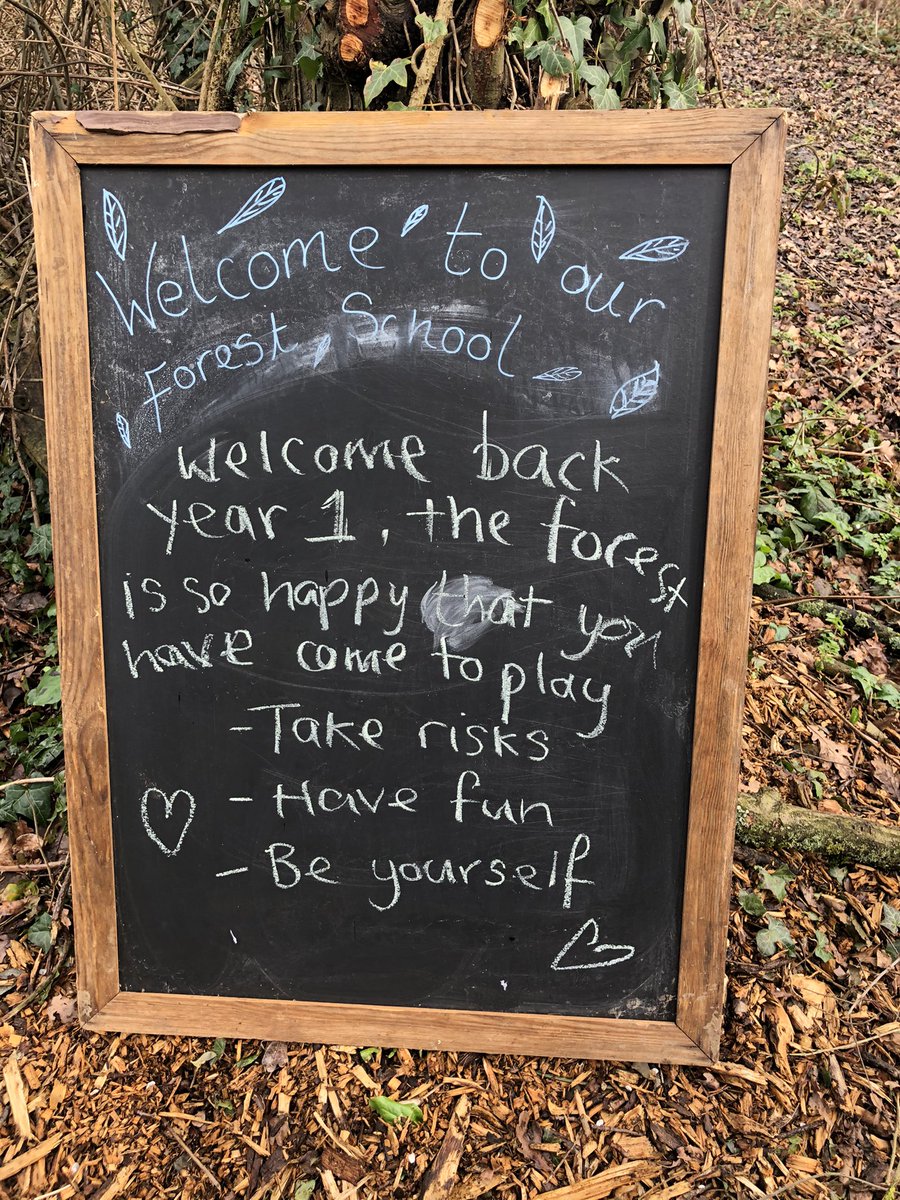 Welcome to our
Forest School
Welcome back
year 1, the forest
is so happy that you
have come to play
- Take risks
- Have fun
- Be yourself